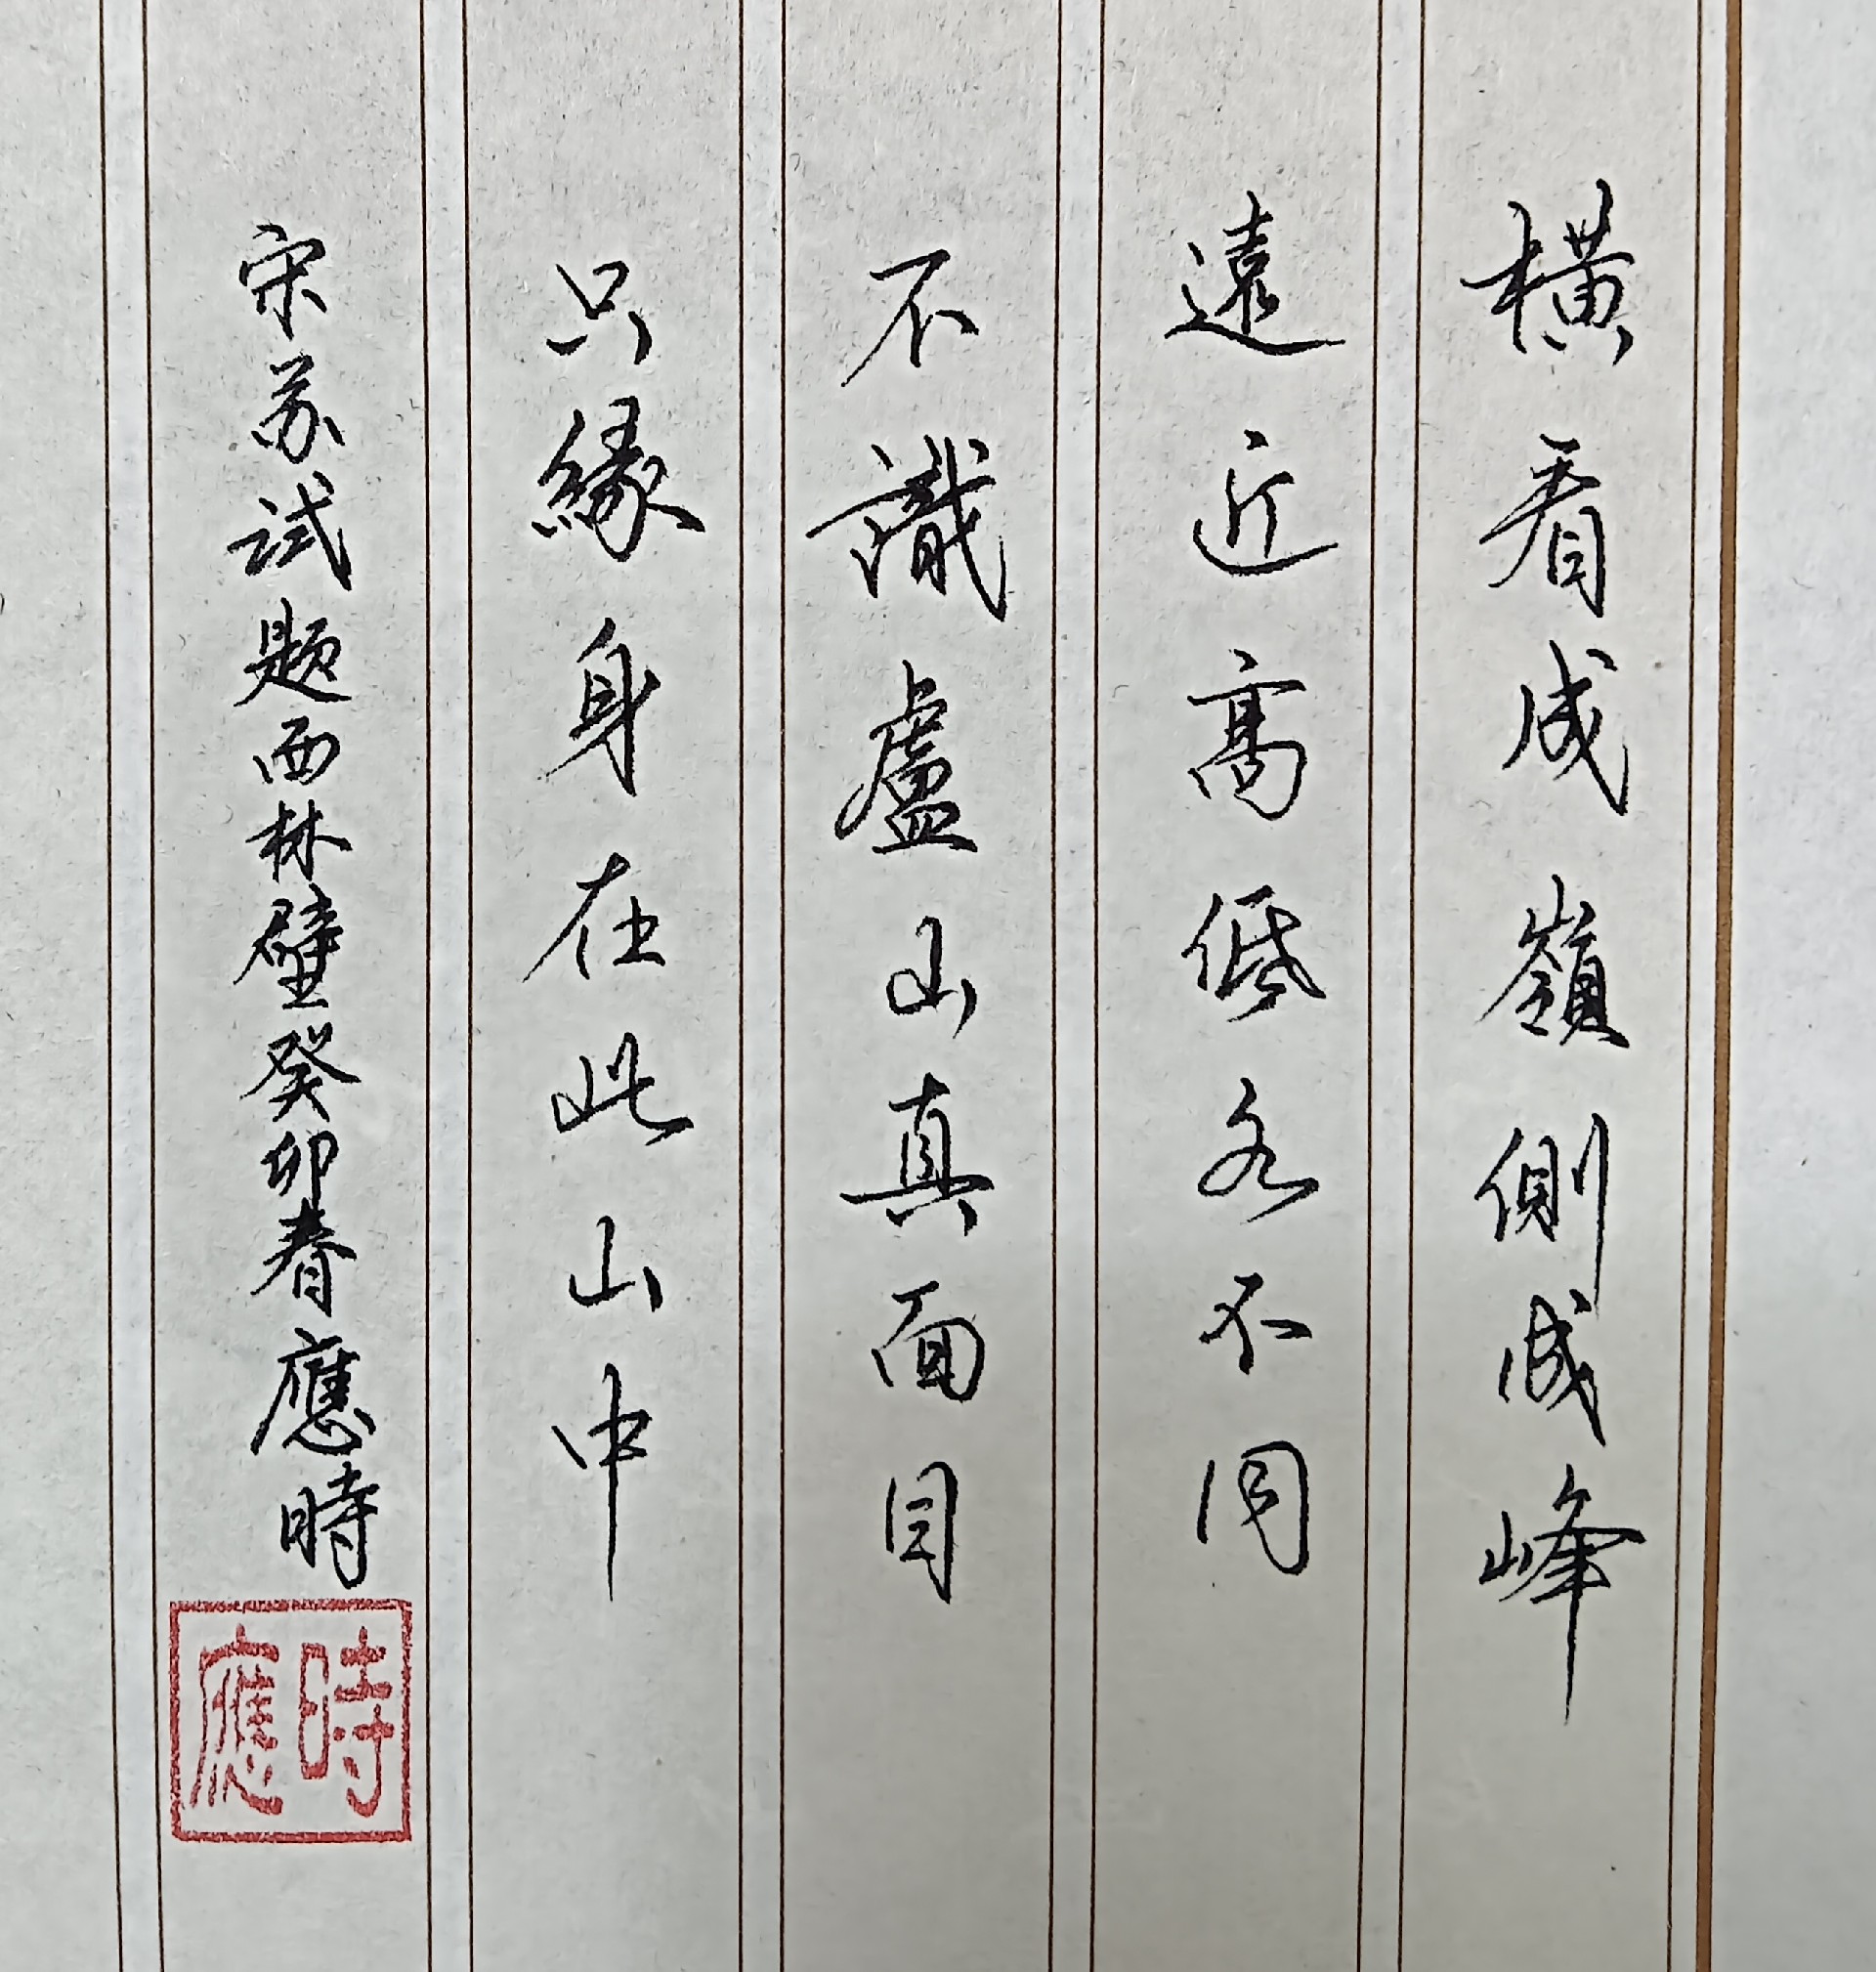 橫看成嶺側成峰
遠近高低各不同
不識盧山真面目
只緣身在此山中
宋苏试题西林壁癸卯春應時
時應